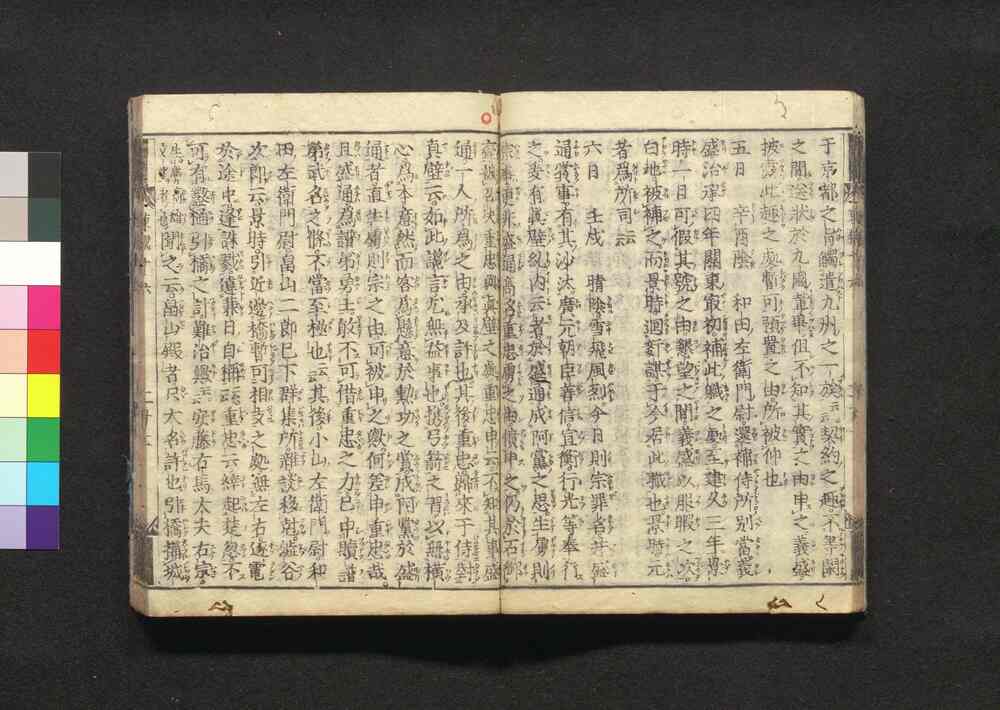 于京都之間觸遣九州之一族云契約之趣不等閑
之間送状於九國輩畢但不知其實之由申之義盛
披露此趣之處暫可預置之由所被仰也
五日　辛酉陰　和田左衛門尉還補侍所別當義
盛治承四年關東最初補此職之處至建久三年景
時一日可假其號之由懇望之間義盛以服暇之次
白地被補之而景時迴奸謀于今居此職也景時元
者爲所司云云
六日　壬戌　晴陰雪飛風烈今日則宗罪名并盛
通賞事有其沙汰廣元朝臣善信宣衡行光等奉行
之爰有眞壁紀内云者於盛通成阿黨之思生虜則
宗事更非盛通高名重忠勇之由憤申之仍於石御
壺被召決重忠與眞壁之處重忠申云不知其事盛
通一人所爲之由承及許也其後重忠歸來于侍對
眞壁云如此讒言尤無益事也携弓箭之習以無横
心爲本意然而客爲懸意於勳功之賞成阿黨於盛
通者直生虜則宗之由可被申之歟何差申重忠哉
且盛通爲譜第勇士敢不可借重忠之力已申黷譜
第武名之條不當至極也云云其後小山左衛門尉和
田左衛門尉畠山二郎已下群集所雜談移剋澁谷
次郎云景時引近邊橋暫可相支之處無左右逐電
於途中逢誅戮違兼日自稱云云重忠云縡起楚忽不
可有鑿樋引橋之計難治歟云云安藤右馬大夫右宗
聞之云畠山殿者只大名許也引橋搆城